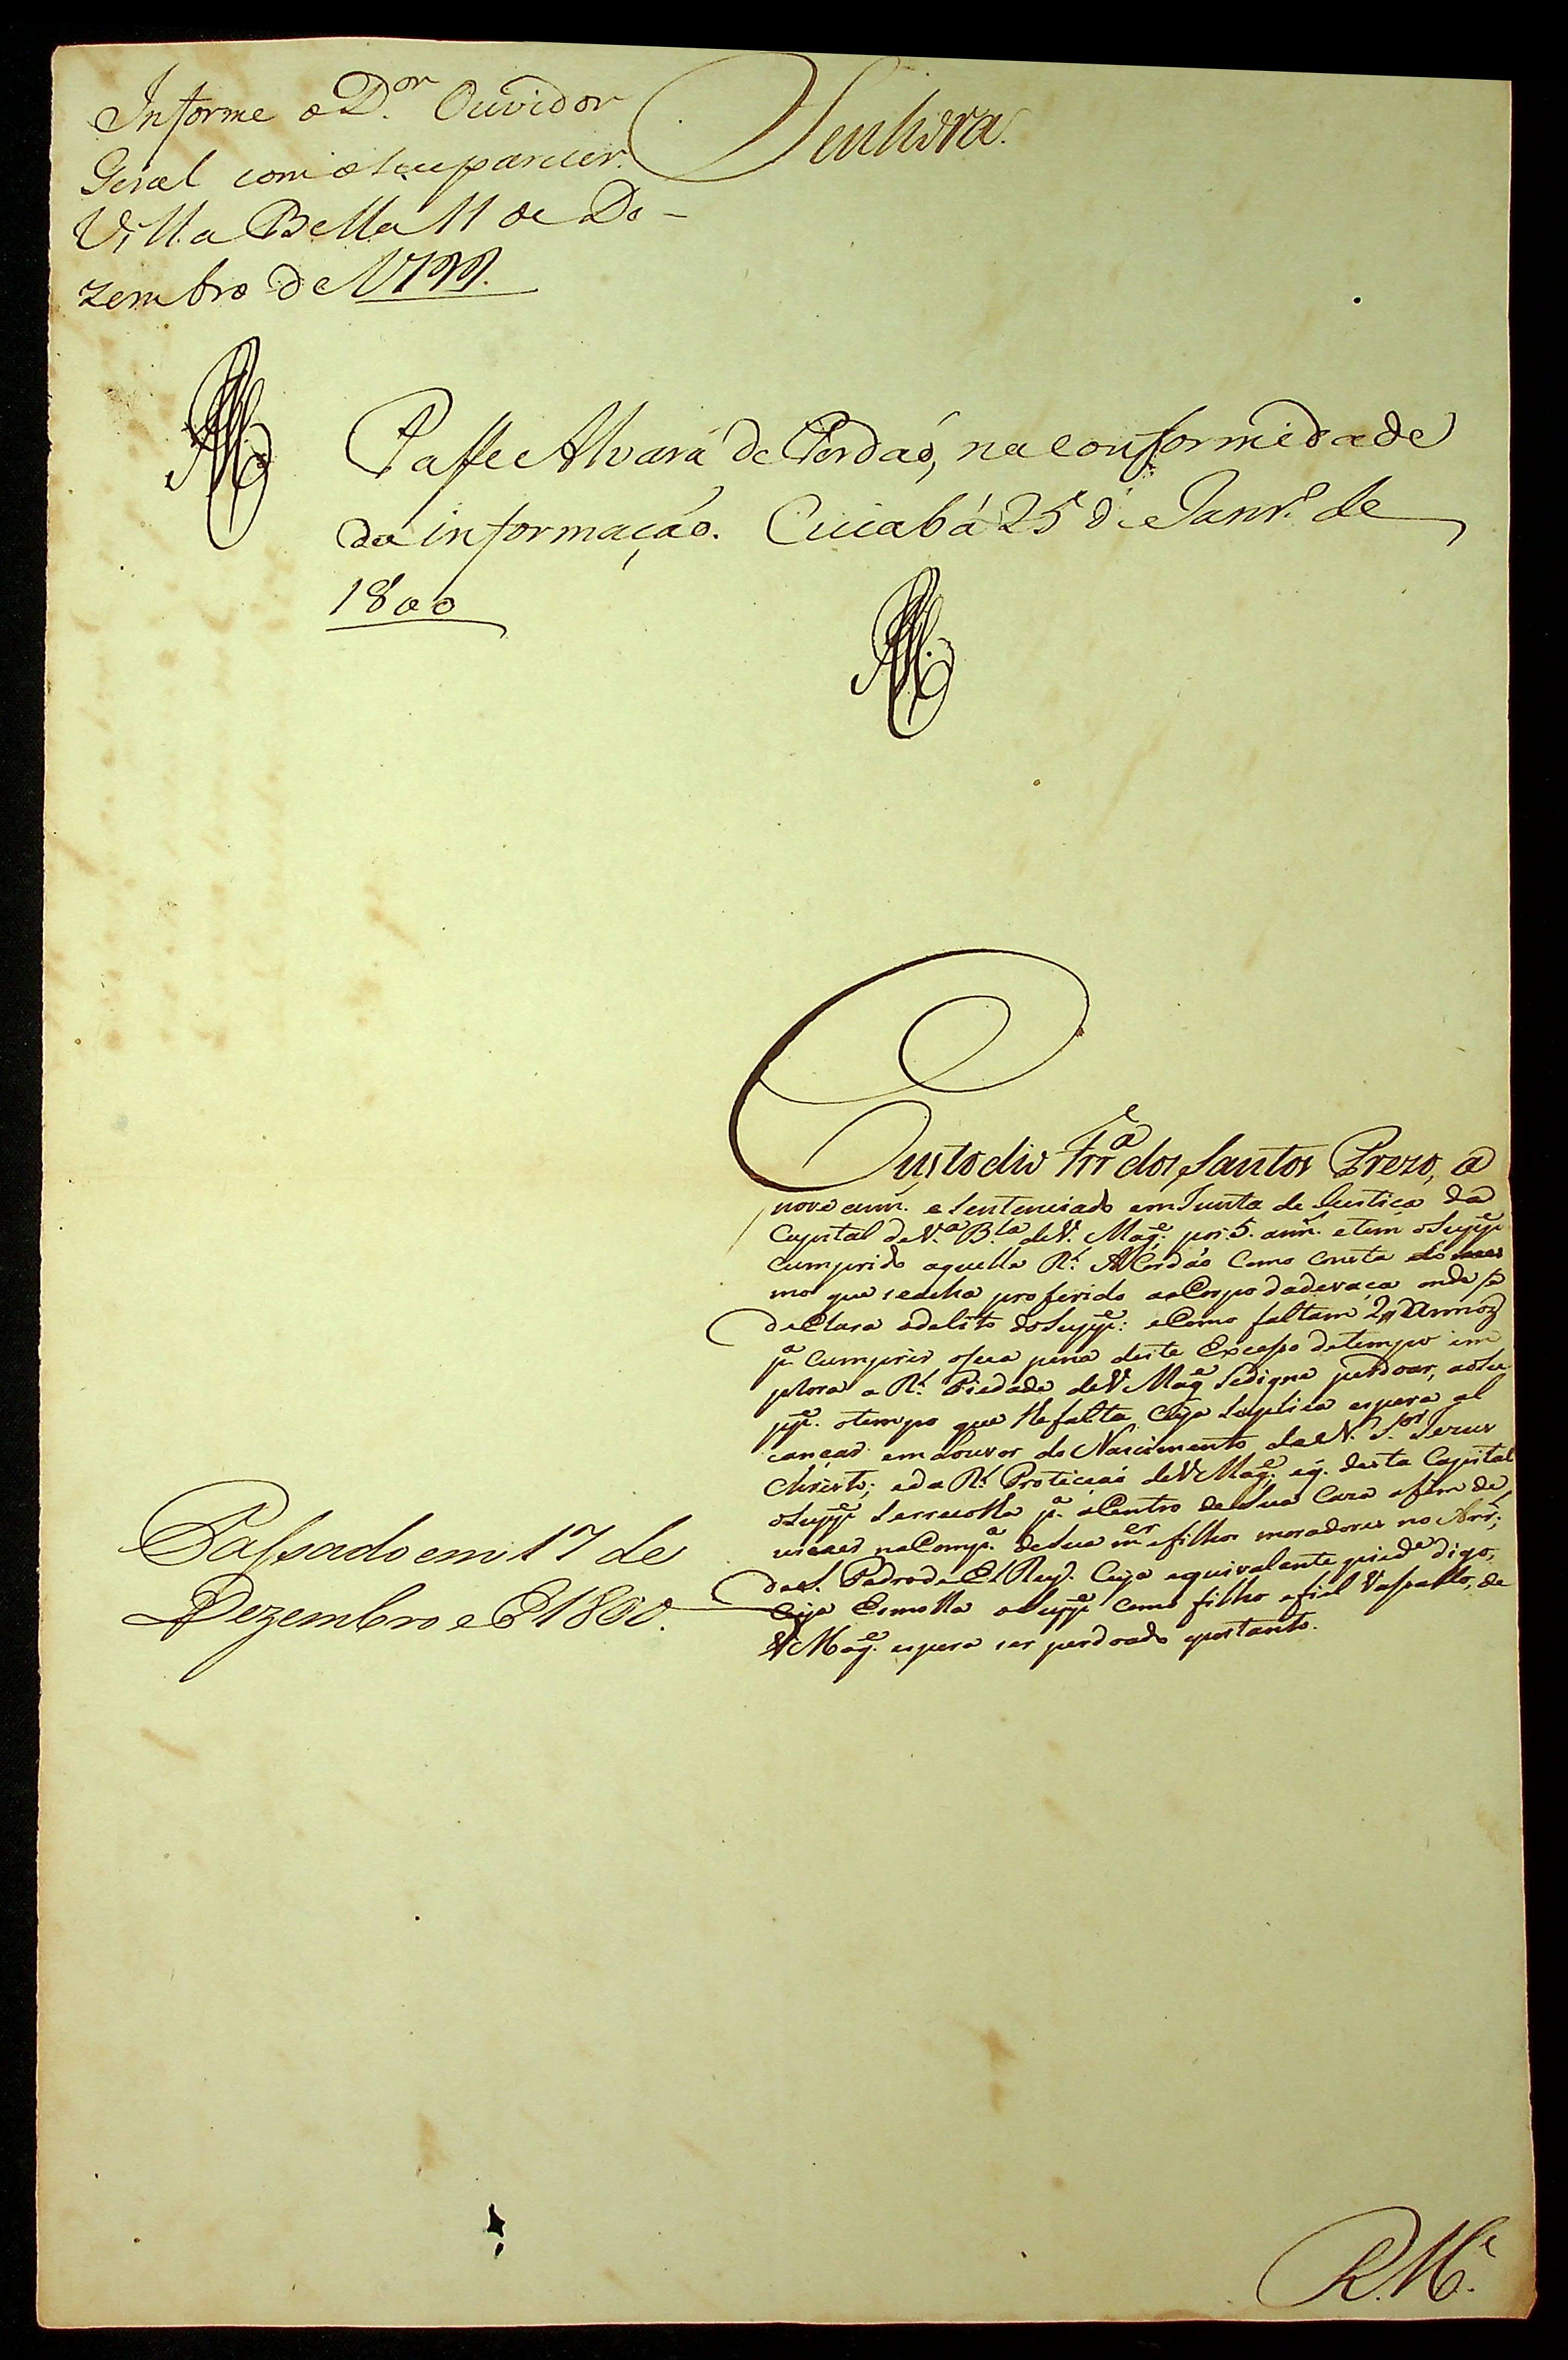 Informe o D.or Ouvidor
Geral com o seu parecer.
Villa Bella 11 de De-
zembro de 1799.
Senhora.
Passe Alvará de Perdaõ, na conformidade
da informaçaõ. Cuiabá 25 de Janr.o de
1800
Custodio Frr.a dos Santos Prezo, a
nove ann.s e Sentenciado em Junta de Justiça da
Capital de V.a B.la de V. Mag.e por 5. ann.s e tem o Supp.e
Cumprido aquella R.l Acordaõ Como consta do mes
mo que se acha proferido ao Corpo da devaça onde se
declara o delito do Supp.e: e Como faltam 2 Annos
p.a Cumprir o sua pena deste Excesso de tempo im
plora a R.l Piedade de V Mag.e Se digne perdoar, ao Su
pp.e o tempo que lhe falta Cuja Suplica espera al
cançar em Louvor do Nascimento de N. S.or Jezus
Christo; e da R.l Proteiçaõ de V Mag.e; e q. desta Capital
o Supp.e Se recolha p.a o Centro de Sua Caza afim de
viver na Comp.a de Sua m.er e filhos moradores no Arr.l
de S. Pedro de El Rey. Cuja equivalente pied.e digo,
Cuja Esmolla o Supp.e Como filho e fiel Vassallo, de
V Mag.e espera ser perdoado portanto.
Passado em 17 de
Dezembro de 1800.
R. M.e